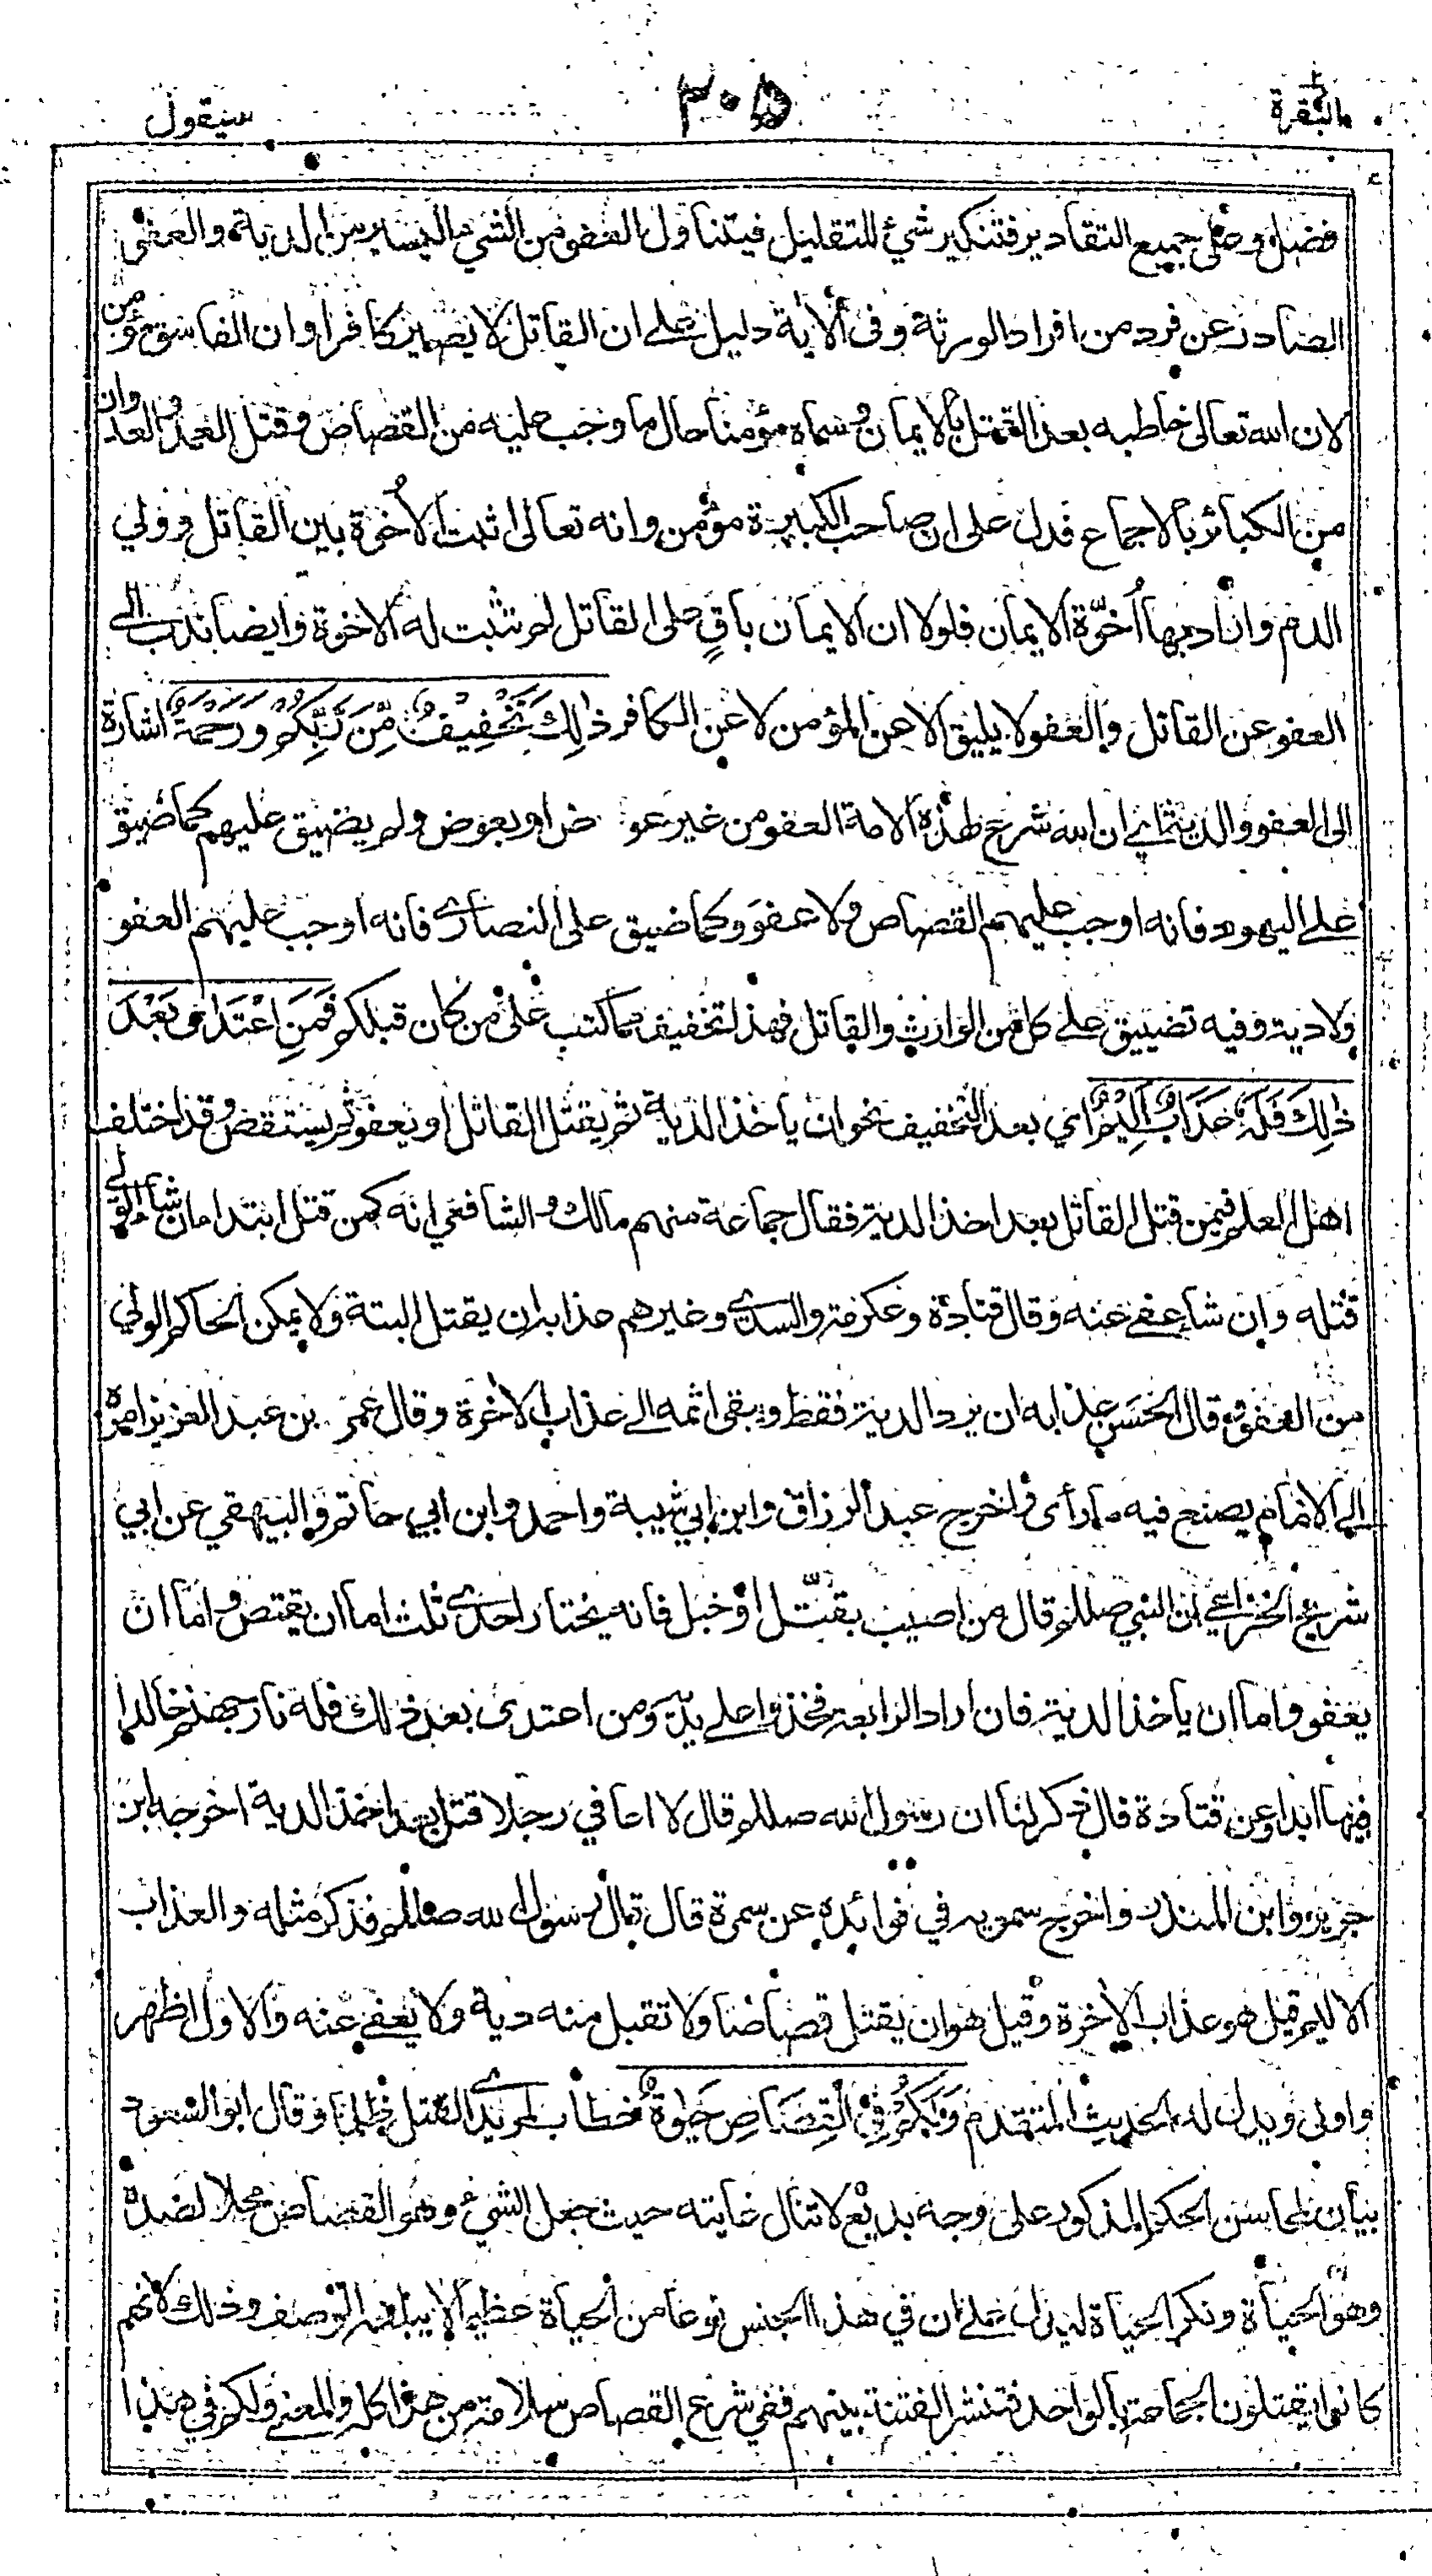 البقرة
٣٠٥
سيقول
فضل وعلى جميع التقادير فتنكير شئ للتقليل فيتناول العفو من الشئ اليسير من الدية والعفو
الصادر عن فرد من افراد الورثة وفي الاٰية دليل على ان القاتل لا يصير كافرا وان الفاسق مؤمن
لان الله تعالى خاطبه بعد القتل بالايمان وسماه مؤمنا حال ما وجب عليه من القصاص وقتل العمد والعدوان
من الكبائر بالاجماع فدل على ان صاحب الكبيرة مؤمن وانه تعالى اثبت الاُخوة بين القاتل وولي
الدم واراد بها اُخوّة الايمان فلولا ان الايمان باقٍ على القاتل لم تثبت له الاخوة وايضا ندب الى
العفو عن القاتل والعفو لا يليق الا عن المؤمن لا عن الكافر ذٰلِكَ تَخْفِيْفٌ مِّنْ رَّبِّكُمْ وَرَحْمَةٌ اشارة
الى العفو والدية اي ان الله شرع لهذه الامة العفو من غير عوض او بعوض ولم يضيق عليهم كما ضيق
على اليهود فانه اوجب عليهم القصاص ولا عفو وكما ضيق على النصارى فانه اوجب عليهم العفو
ولا دية وفيه تضييق على كل من الوارث والقاتل فهذا تخفيف مما كتب على من كان قبلكم فَمَنِ اعْتَدٰى بَعْدَ
ذٰلِكَ فَلَهٗ عَذَابٌ اَلِيْمٌ اي بعد التخفيف نحو ان ياخذ الدية ثم يقتل القاتل او يعفو ثم يستقص وقد اختلف
اهل العلم فيمن قتل القاتل بعد اخذ الدية فقال جماعة منهم مالك والشافعي انه كمن قتل ابتداء ان شاء الولي
قتله وان شاء عفى عنه وقال قتادة وعكرمة والسدي وغيرهم عذابه ان يقتل البتة ولا يمكن الحاكم الولي
من العفو وقال الحسن عذابه ان يرد الدية فقط ويبقى اثمه الى عذاب الاٰخرة وقال عمر بن عبد العزيز امره
الى الامام يصنع فيه ما رأى واخرج عبد الرزاق وابن ابي شيبة واحمد وابن ابي حاتم والبيهقي عن ابي
شريح الخزاعي ان النبي صللم قال من اصيب بقتل او خبل فانه يختار احدى ثلث اما ان يقتص واما ان
يعفو واما ان ياخذ الدية فان اراد الرابعة فخذوا على يديه ومن اعتدى بعد ذلك فله نار جهنم خالدا
فيها ابدا وعن قتادة قال ذكر لنا ان رسول الله صللم قال لا اعافي رجلا قتل بعد اخذ الدية اخرجه ابن
جرير وابن المنذر واخرج سمويه في فوائده عن سمرة قال قال رسول الله صللم فذكر مثله والعذاب
الاليم قيل هو عذاب الاٰخرة وقيل هو ان يقتل قصاصا ولا تقبل منه دية ولا يعفى عنه والاول اظهر
واولى ويدل له الحديث المتقدم وَلَكُمْ فِي الْقِصَاصِ حَيٰوةٌ خطاب لمريد القتل ظلما وقال ابو السعود
بيان لمحاسن الحكم المذكور على وجه بديع لا تنال غايته حيث جعل الشئ وهو القصاص محلا لضده
وهو الحياة ونكر الحياة ليدل على ان في هذا الجنس نوعا من الحياة عظيم لا يبلغه الوصف وذلك لانهم
كانوا يقتلون الجماعة بالواحد فتنشر الفتنة بينهم ففي شرع القصاص سلامة من هذا كله والمعنى ولكم في هذا